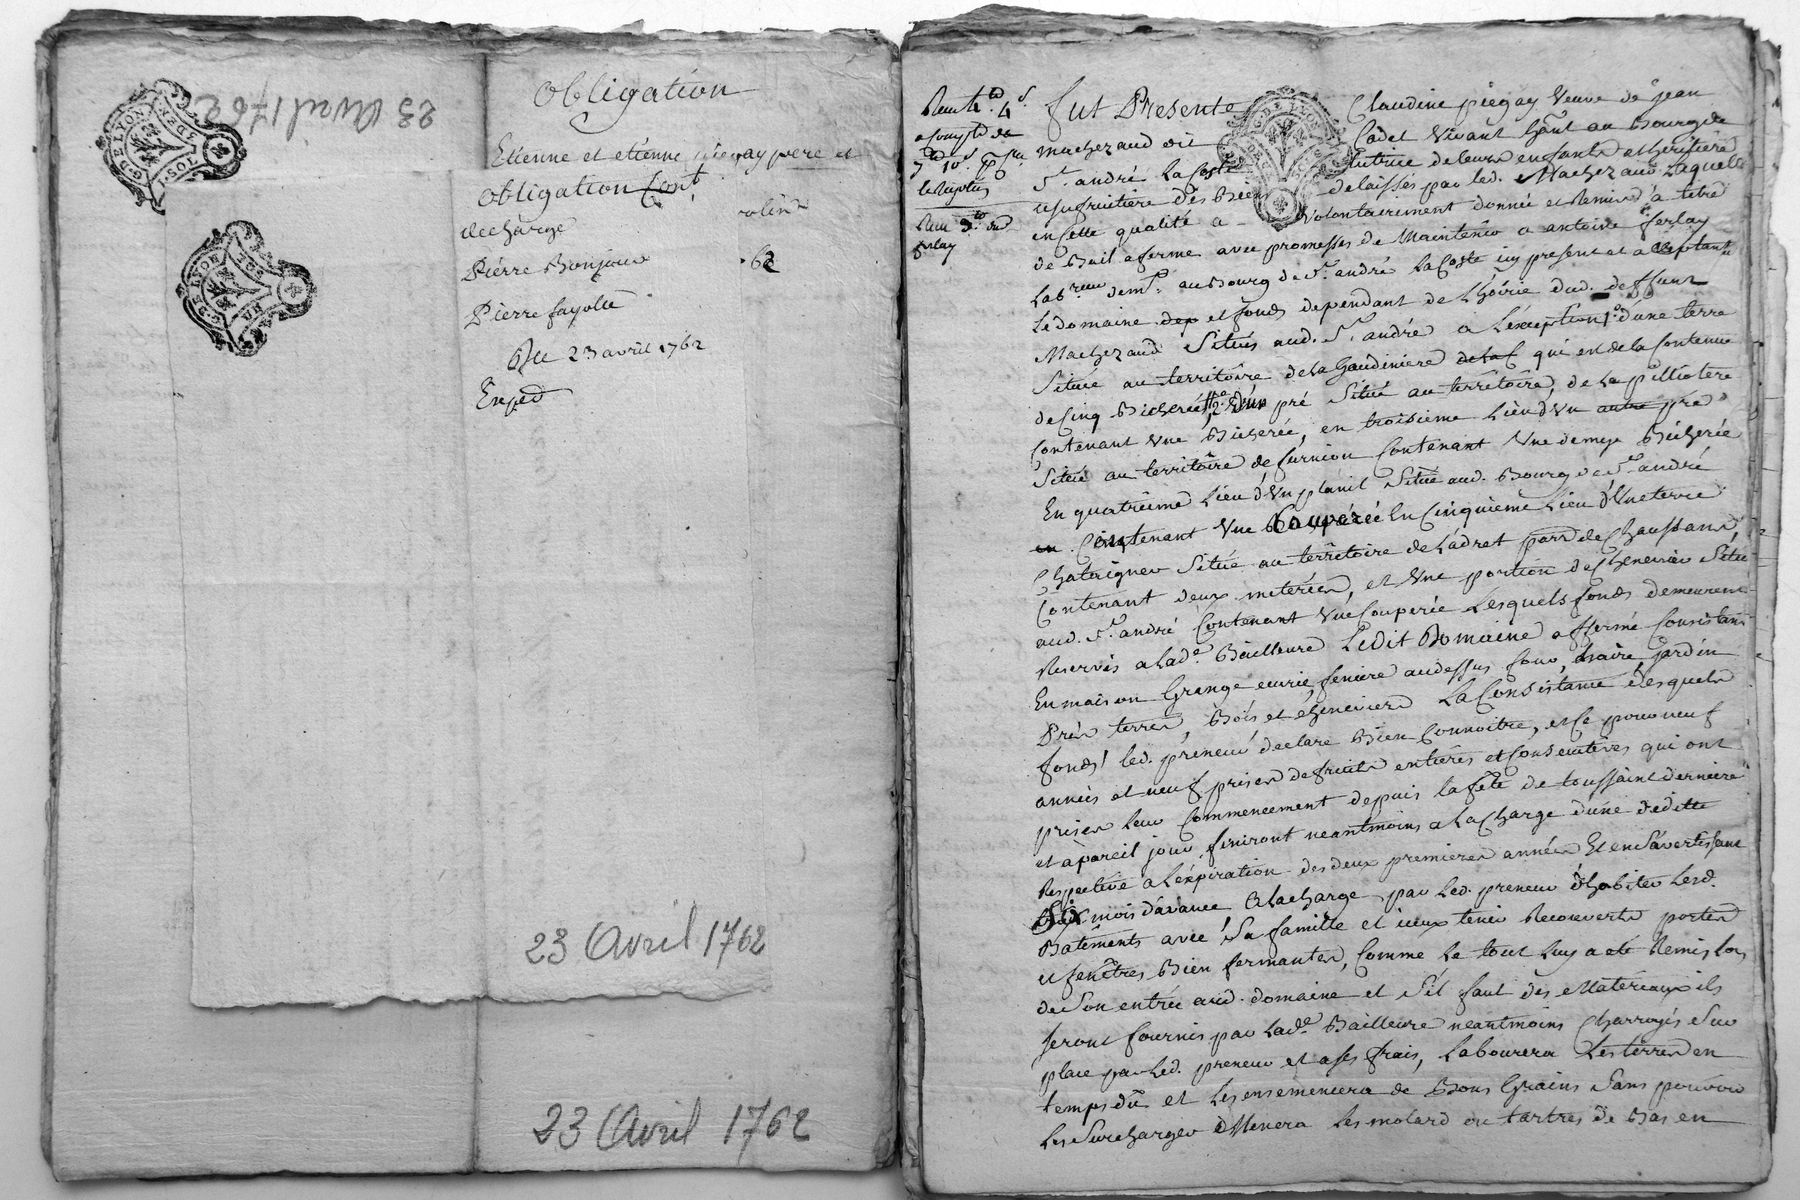 23 Avril 1762
G. DE LYON
1. SOL 5 DEN
G. DE LYON
obligation
Etienne et etienne piegay pere et
obligation Cont
decharge
Pierre Bonjour
62
Pierre fayolle
Du 23 avril 1762
Exped
23 Avril 1762
23 Avril 1762
fut Presente Claudine piegay Veuve de jean
machezaud dit Cadet Vivant habt au Bourg de
St. andré La Coste tutrice de leurs enfants et heritiere
usufruitiere des Biens delaissés par led. Machezaud Laquelle
en Cette qualité a volontairement donné et Remis a titre
de Bail a ferme avec promesses de Maintenir a antoine ferlay
Labreur demt. au Bourg de St. andré La Coste icy present et acceptant
Le domaine dep et fonds dependant de L'hoirie dud. deffunt
Machezaud Situés aud. St. andré a L'exception 1o. d'une terre
Située au territoire de la Gaudiniere qui est de la Contenue
de Cinq Bicherées, 2o. d'un pré Situé au territoire de la pilliotere
Contenant Une Bicherée, en troisieme Lieu d'Un autre pré
Situé au territoire de furnion Contenant Une demye Bicherée
En quatrieme Lieu d'Un planil Situé aud. Bourg de St. andré
en Contenant Une Couperée En Cinquieme Lieu d'Une terre
Chataignier Située au territoire de Ladret parr de Chaussans,
Contenant deux meterées, et Une portion de Chenevier Située
aud. St. andré Contenant Une Couperée Lesquels fonds demeurent
Reservés a Lade. Bailleure Ledit Domaine affermé Consistant
En maison Grange ecurie feniere au dessus four, haire, jardin
Prés terres, Bois et cheneviers La Consistance desquels
fonds led. preneur declare Bien Connoitre, et Ce pour neuf
années et neuf prises de fruits entieres et Consecutives qui ont
prises leur Commencement depuis la fête de toussaint derniere
et a pareil jour finiront neantmoins a La Charge d'une deditte
Respective a L'expiration des deux premieres années Et en s'avertissant
Six mois d'avance a la charge par led. preneur d'habiter Lesd.
Batiments avec Sa famille et iceux tenir Recouverts portes
et fenêtres Bien fermantes, Comme Le tout Luy a eté Remis Lors
de Son entrée aud. domaine et S'il faut des Matereaux ils
seront fournis par Lade. Bailleure neantmoins Charroyés Sur
place par Led. preneur et a ses frais, Labourera Les terres en
temps dû et Les ensemencera de Bons Grains Sans pouvoir
Les Surcharger Menera Les molard ou tartres de Bas en